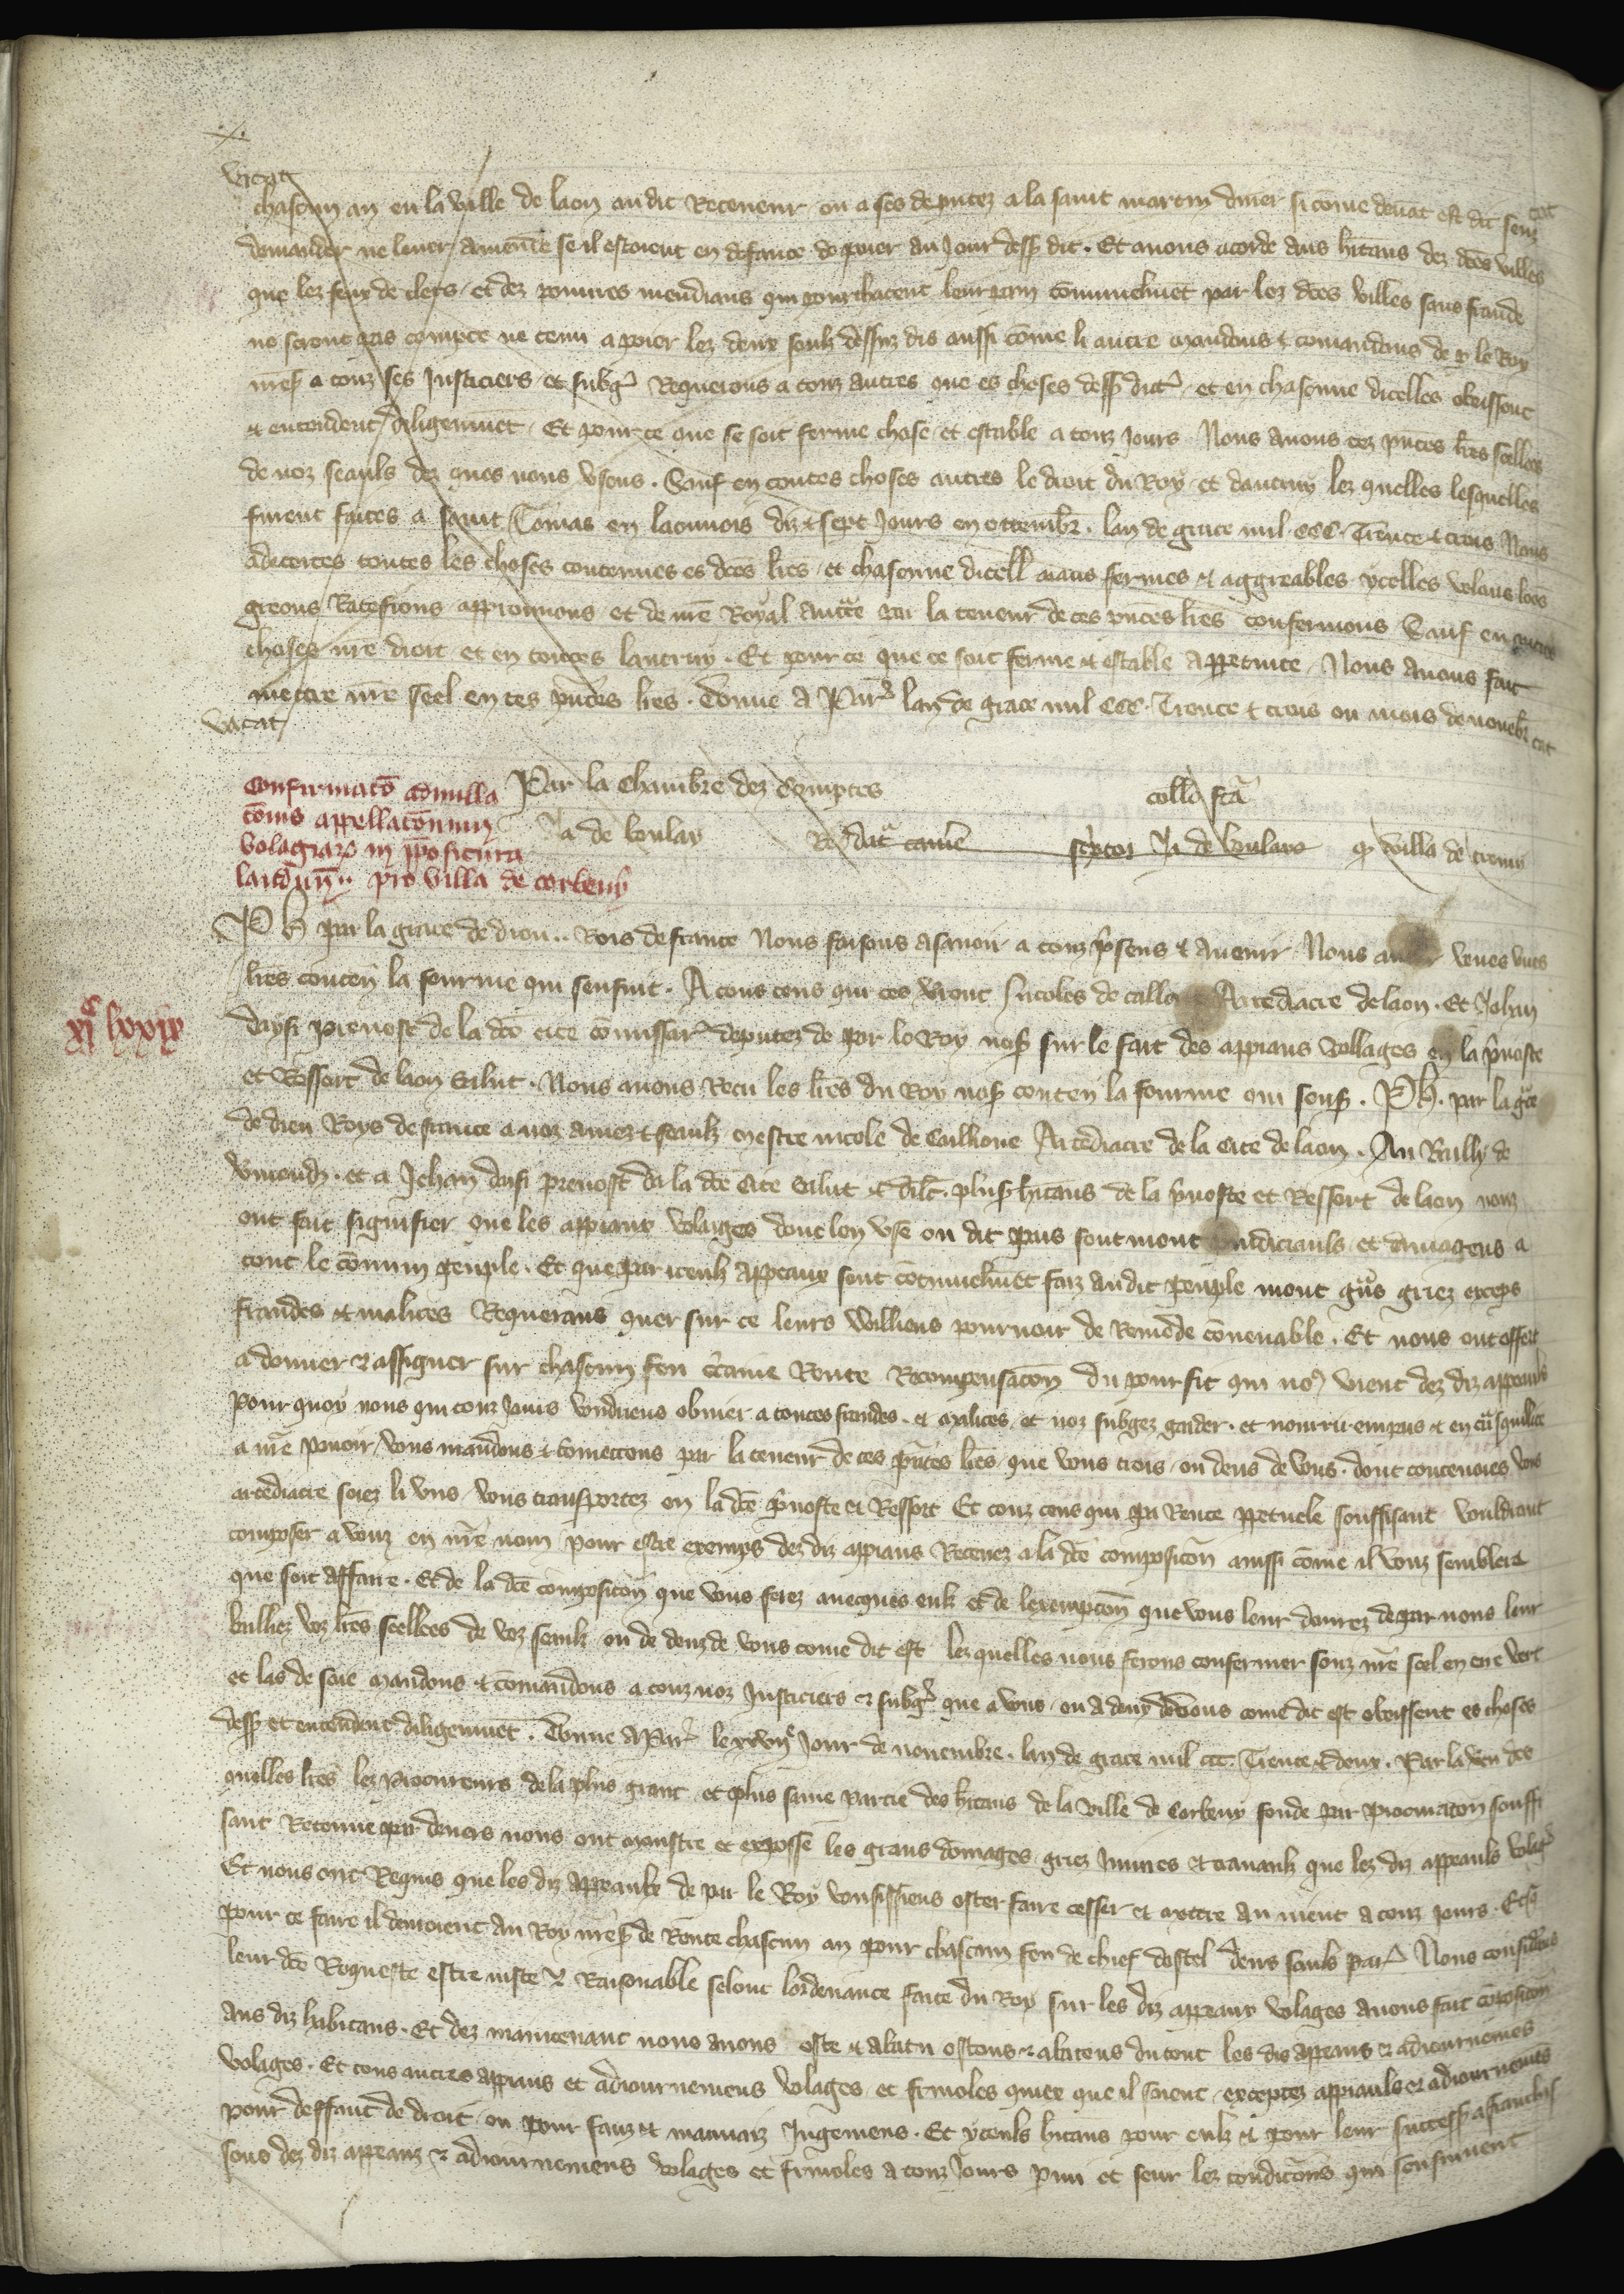 vacat
chascun an en la ville de laon audit Receveur ou a ses deputez a la saint martin diver si cōme devāt est dit senz
demander ne lever amende se il estoient en defaute de poier au Jour dess dit. Et avons acorde aus hītans dez dc̄es villes
que lez feux de clers et dez povures mendians qui pourchacent leur pain cōmunelmēt par lez dc̄es villes sans fraude
ne seront pas compte ne tenu a poier lez deux soulz dessuz dis aussi cōme li autre mandons & comandons de p le Roy
nr̄es a touz ses Justiciers et subgz Requerons a touz autres que es choses dess dites et en chascune dicelles obeissent
et entendent diligenmēt. Et pour ce que se soit ferme chose et estable a touz jours Nous avons cez pn̄tes lr̄es scellees
de noz seauls dez ques nous usons. Sauf en toutes choses autres le droit du Roy et dautruy lez quelles lesquelles
furent faites a saint Tomas en laonnois diz & sept Jours en ottembr̄. lan de grace mil. CCC. Trente & trois Nous
adcertes toutes les choses contenues es dc̄es lr̄es et chascune dicell aians fermes et aggreables ycelles volons loons
greons Ratefions approuvons et de nr̄e Royal auctt̄e par la teneur de ces pn̄tes lr̄es confermons Sauf en autres
choses nr̄e droit et en toutes lautruy. Et pour ce que ce soit ferme & estable a ppetuite Nous avons fait
mettre nr̄e seel en ces pn̄tes lr̄es. Donne a Par̄ lan de grace mil CCC. Trente & trois ou mois de novēbr̄
vacat
Par la Chambre dez Comptes
Ja de boulay
collō fc̄a
Confirmatō
cōmis appellatōnum
volagiar in p̄positura
laudun̄.. pro villa de corbeny
Ph par la grace de dieu.. Rois de france Nous faisons asavoir a touz p̄sens & avenir Nous avoir veues unes
lr̄es conten̄ la fourme qui sensuit. A tous ceus qui ces Nicoles de Arcediacre de laon. Et Jehan
xjᶜ lxxix
daysi prevost de la dc̄e cite cōmissar̄ deputez de par le Roy nos̄ sur le fait des appiaus vollages en la p̄voste
et Ressort de laon Salut. Nous avons Receu les lr̄es du Roy nos̄ conten̄ la fourme qui sens̄. Ph. par la gc̄e
de dieu Roys de france a noz amez & feaulz mestre nicole de Arcediacre de la cite de laon. Au Bailly de
Vmendz. et a Jehan daysi prevost de la dc̄e Cite Salut & dilc̄. plus̄ hītans de la p̄voste et Ressort de laon nouz
ont fait signifier que les appiaux volaiges dont len use ou dit pais sont mont p̄iudiciauls et damageus a
tout le cōmun peuple. Et que par iceulz appeaux sont cōmunelmēt faiz audit peuple mont griez exceps
fraudes et malices Requerans quer sur ce leurs vuilliens pourveoir de Remede cōvenable. Et nous ont offert
a donner & assigner sur chascun feu c̄taine Rente Recompensacōn du pourfit qui no9 vient dez diz appeaulz
Pour quoy nous qui touz jours voudriens obvier a toutes fraudes et malices et noz subgez garder et nourrir en pais & en
a nr̄e povoir vous mandons & cōmettons par la teneur de ces pn̄tes lr̄es que vous trois ou deus de vous dont toutevoies vous
arcediacre soiez li uns vous transportez en la dc̄e p̄voste et Ressort Et touz ceus qui par Rente ppetuele souffisant vouldront
composer a vouz en nr̄e nom pour estre exemps dez diz appiaus Recevez a la dc̄e composicōn aussi cōme il vouz semblera
que soit affaire. Et de la dc̄e composicōn que vous ferez avecques eulz et de lexempcōn que vous leur donrez de par nous leur
bailliez voz lr̄es scellees de voz seaulz ou de deuz de vous come dit est lez quelles nous ferons confermer souz nr̄e scel en cire vert
et las de soie mandons & cōmandons a touz noz Justiciers & subgz que a vous ou a deux de vous come dit est obeissent es choses
dess et entendent diligenmēt. Donne a Par̄ le xxvijᵉ Jour de novembre. lan de grace mil ccc Trente & deux. Par la des
quelles lr̄es lez Procureurs de la plus grant et plus saine partie des hītans de la ville de Corbeny fonde par procuracōn souffi
sant Retenue par devers nous ont monstre et expose les grans domages griez et travaulz que lez diz appeauls volagz
Et nous ont Requis que les diz appeaulx de par le Roy vousissiens oster faire cesser et mettre au nient a touz jours.
pour ce faire il donroient au Roy nr̄es de Rente chascun an pour chascun feu de chief dostel deus sauls par̄ Nous considerans
leur dc̄e Requeste estre iuste & Raisonable selonc lordenance faite du Roy sur les diz appeaux volages avons fait
aus diz habitans. Et dez maintenant nous avons oste et abatu ostons & abatons du tout les dis appeaus & adiournemēs
volages. Et tous autres appiaus et adiournemens volages et frivoles quiex que il soient exceptez appiauls & adiournemēs
pour deffaut de droit ou pour faux & mauvaiz Jugemens. Et yceuls hītans pour eulz et pour leur success afranchis
sons dez diz appeaux & adiournemens volages et frivoles a touz Jours et seur lez condicōns qui sensuivent